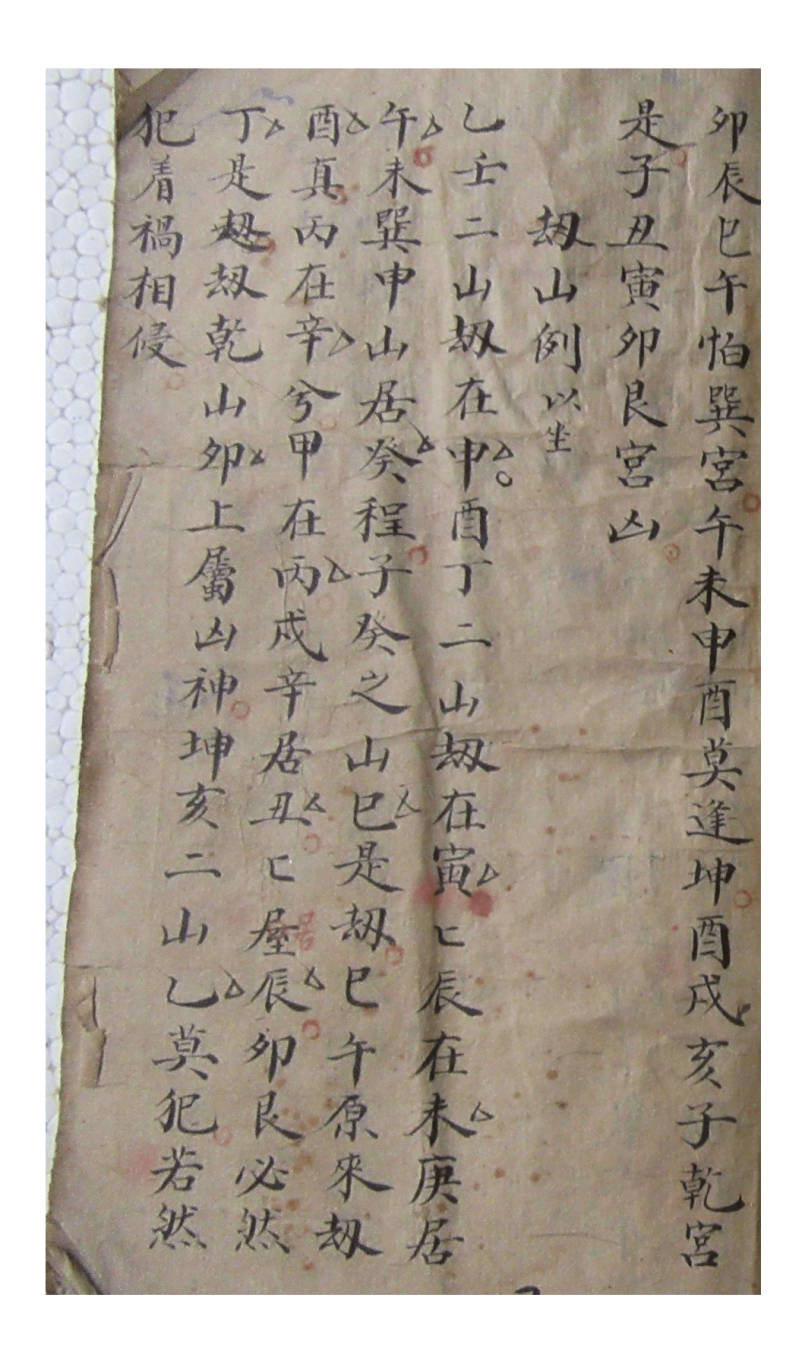 卯辰巳午怕巽宮午未申酉莫逢坤酉戌亥子乾宮
是子丑寅卯艮宮凶
劫山例以坐
乙壬二山劫在申酉丁二山劫在寅匕辰在未庚居
午未巽申山居癸程子癸之山巳是劫巳午原來劫
酉真丙在辛兮甲在丙戌辛居丑匕居辰卯艮必然
丁是劫乾山卯上屬凶神坤亥二山乙莫犯若然
犯着禍相侵